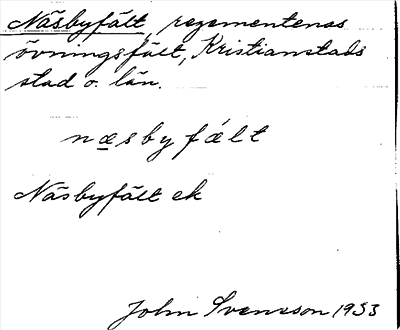 Näsbyfält, regementenas
övningsfält, Kristianstads
stad o. län.
næsbyfált
Näsbyfält ek
John Svensson 1953